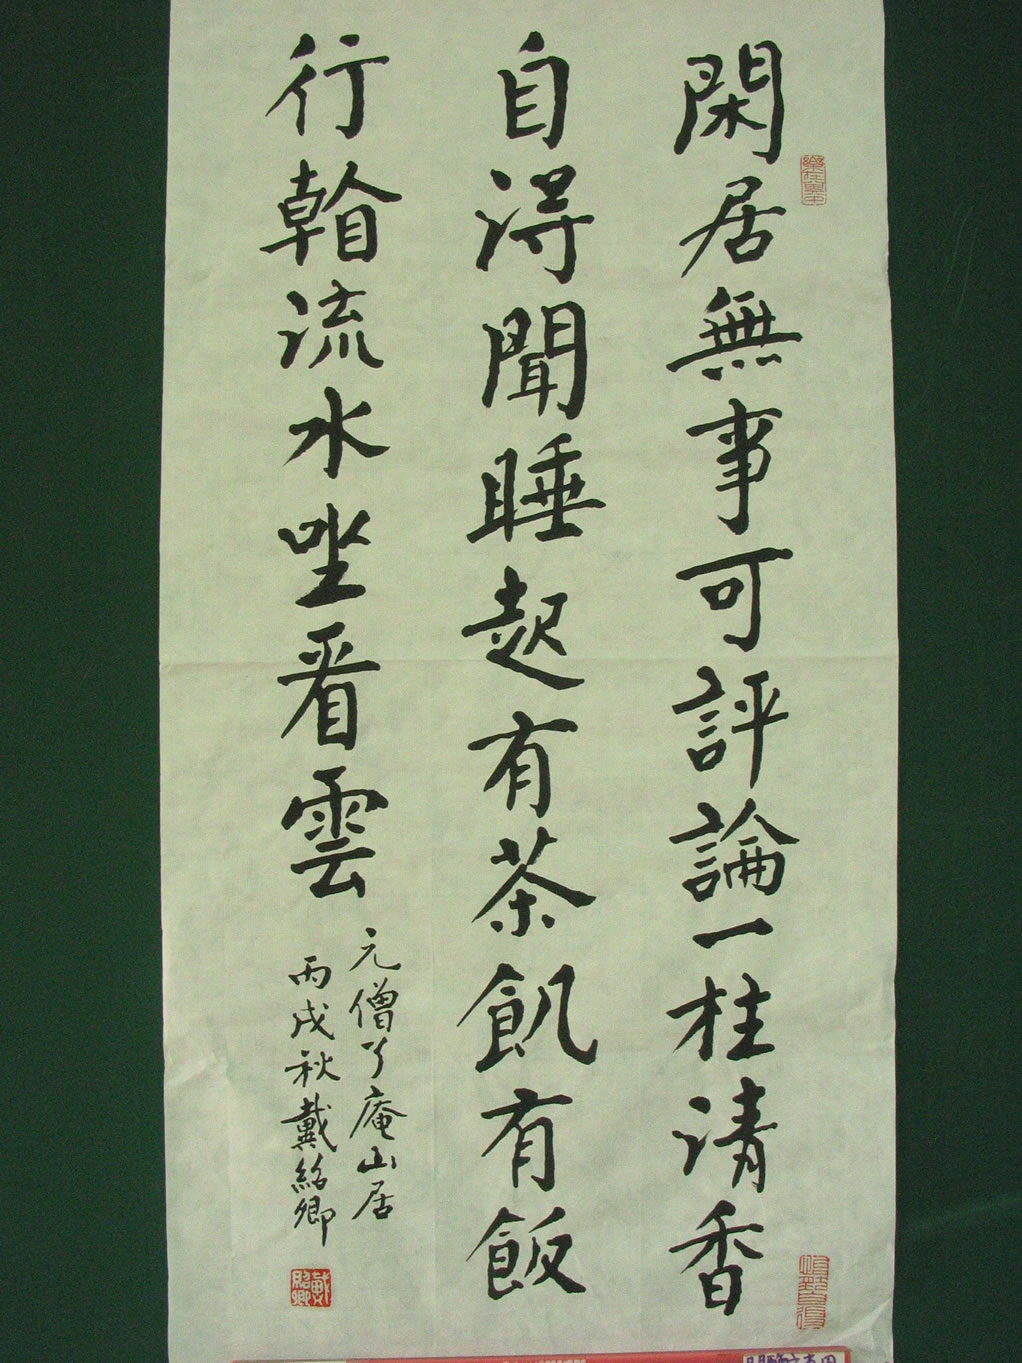 閑居無事可評論一柱清香
自得聞睡起有茶飢有飯
行看流水坐看雲
元僧了庵山居
丙戌秋戴紹卿